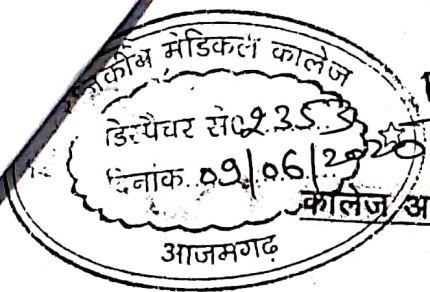 राजकीय मेडिकल कालेज
डिस्पैचर सं० 2353
दिनांक. 09/06/2020
आजमगढ़
कालेज